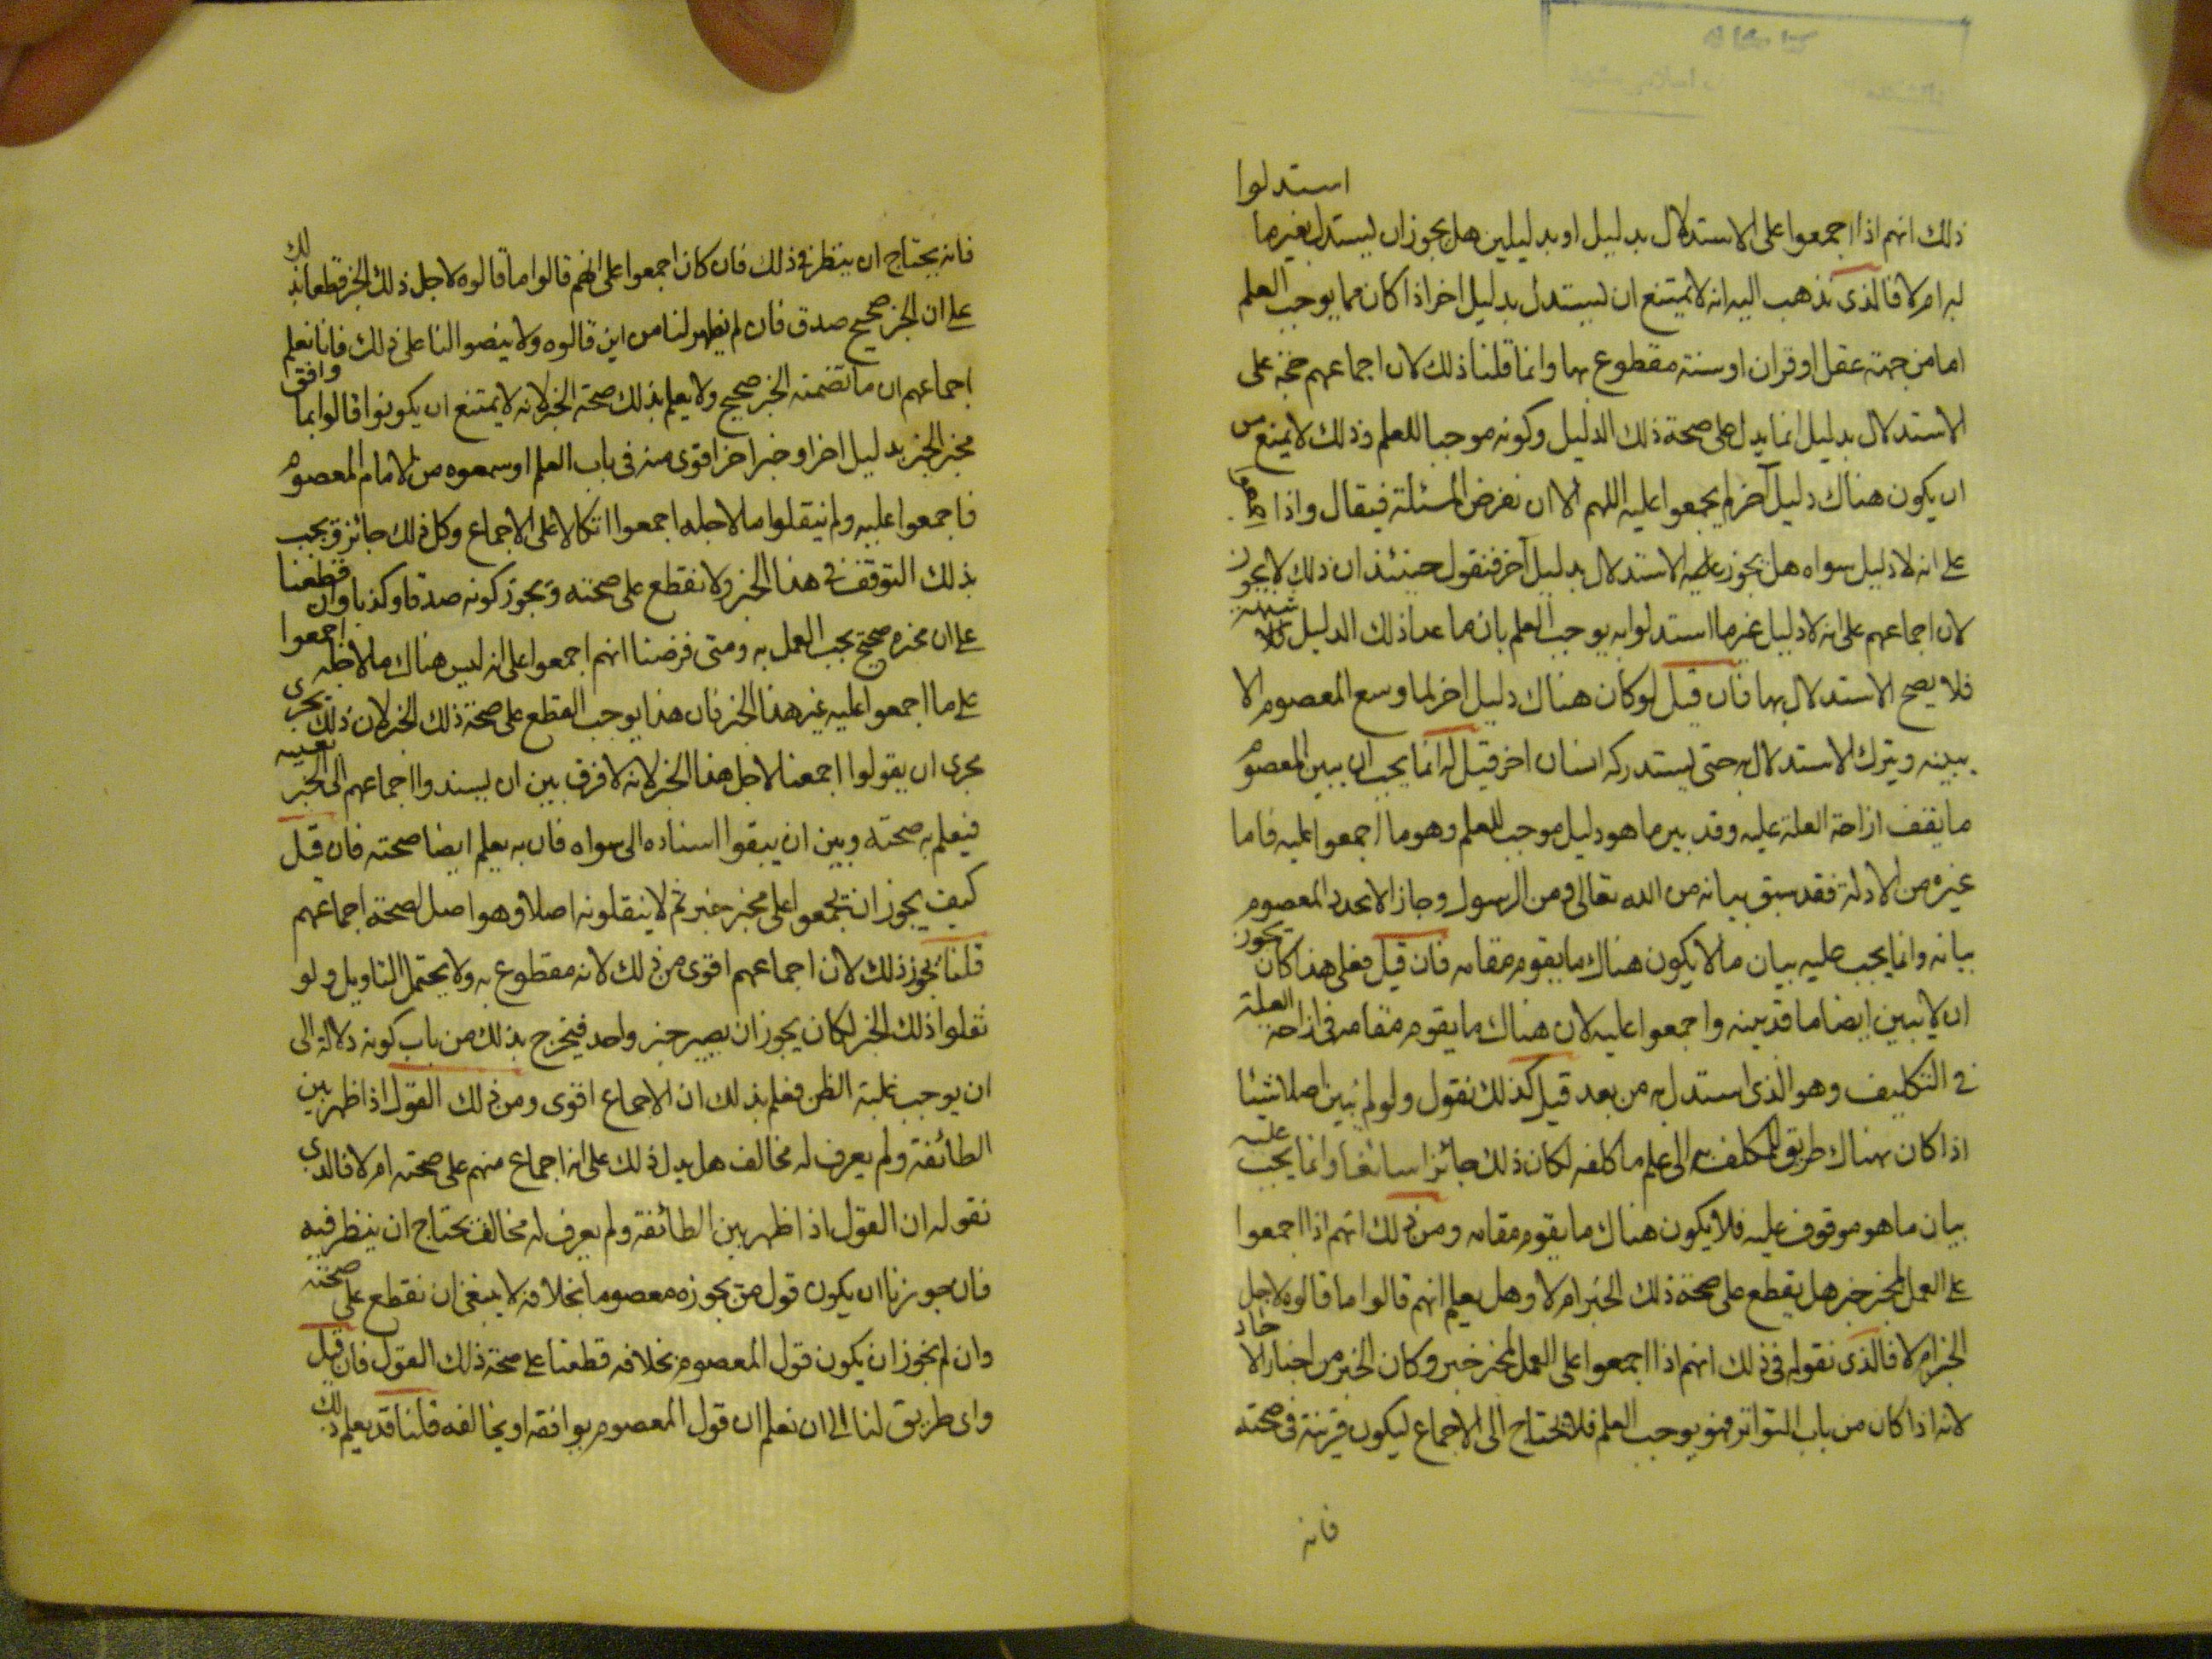 استدلوا
ذلك انهم اذا اجمعوا على الاستدلال بدليل او بدليلين هل يجوز ان يستدل بغير ما
به ام لا فالذى نذهب اليه انه لا يمتنع ان يستدل بدليل اخر اذا كان مما يوجب العلم
اما من جهة عقل او قران او سنة مقطوع بها وانما قلنا ذلك لان اجماعهم حجة على
الاستدلال بدليل انما يدل على صحة ذلك الدليل وكونه موجبا للعلم وذلك لا يمنع من
ان يكون هناك دليل آخر لم يجمعوا عليه اللهم الا ان نفرض المسئلة فيقال واذا
على انه لا دليل سواه هل يجوز الاستدلال بدليل آخر فنقول حينئذ ان ذلك لا يجوز
لان اجماعهم على انه لا دليل غير ما استدلوا به يوجب العلم بان ما عدا ذلك الدليل شبهة
فلا يصح الاستدلال بها فان قيل لو كان هناك دليل اخر لما وسع المعصوم الا
يبينه ويترك الاستدلال به حتى يستدركه انسان اخر قيل له انما يجب ان يبين المعصوم
ما يقف ازاحة العلة عليه وقد بين ما هو دليل موجب للعلم وهو ما اجمعوا عليه فاما
غيره من الادلة فقد سبق بيانه من الله تعالى ومن الرسول وجاز الا يحدد المعصوم
بيانه وانما يجب عليه بيان ما لا يكون هناك ما يقوم مقامه فان قيل فعلى هذا كان يجوز
ان لا يبين ايضا ما قد بينه واجمعوا عليه لان هناك ما يقوم مقامه فى ازاحة العلة
فى التكليف وهو الذى استدل به من بعد قيل كذلك نقول ولو لم يبين اصلا شيئا
اذا كان هناك طريق للمكلف الى علم ما كلفه لكان ذلك جائزا سائغا وانما يجب عليه
بيان ما هو موقوف عليه فلا يكون هناك ما يقوم مقامه ومن ذلك انهم اذا اجمعوا
على العمل بمخبر خبر هل يقطع على صحة ذلك الخبر ام لا وهل يعلم انهم قالوا ما قالوه لاجل
الخبر ام لا فالذى نقوله فى ذلك انهم اذا اجمعوا على العمل بمخبر خبر وكان الخبر من اخبار الاحاد
لانه اذا كان من باب التواتر فهو يوجب العلم فلا يحتاج الى الاجماع ليكون قرينة فى صحته
فانه
فانه يحتاج ان ينظر فى ذلك فان كان اجمعوا على انهم قالوا ما قالوه لاجل ذلك الخبر قطعنا بذلك
على ان الخبر صحيح صدق فان لم يظهر لنا من اين قالوه ولا ينصوا لنا على ذلك فانا نعلم
اجماعهم ان ما تضمنه الخبر صحيح ولا يعلم بذلك صحة الخبر لانه لا يمتنع ان يكونوا قالوا بما وافق
مخبر الخبر بدليل اخر او خبر اخر اقوى منه فى باب العلم او سمعوه من الامام المعصوم
فاجمعوا عليه ولم ينقلوا ما لاجله اجمعوا اتكالا على الاجماع وكل ذلك جائز ويجب
بذلك التوقف فى هذا الخبر ولا نقطع على صحته ويجوز كونه صدقا وكذبا وان قطعنا
على ان مخبره صحيح يجب العمل به ومتى فرضنا انهم اجمعوا على انه ليس هناك ما لاجله اجمعوا
على ما اجمعوا عليه غير هذا الخبر فان هذا يوجب القطع على صحة ذلك الخبر لان ذلك يجرى
مجرى ان يقولوا اجمعنا لاجل هذا الخبر لانه لا فرق بين ان يسندوا اجماعهم الى الخبر بعينه
فيعلم به صحته وبين ان يبقوا اسناده الى سواه فان به يعلم ايضا صحته فان قيل
كيف يجوز ان تجمعوا على مخبر خبر ثم لا ينقلونه اصلا وهو اصل لصحة اجماعهم
قلنا يجوز ذلك لان اجماعهم اقوى من ذلك لانه مقطوع به ولا يحتمل التاويل ولو
نقلوا ذلك الخبر لكان يجوز ان يصير خبر واحد فيخرج بذلك من باب كونه دلالة الى
ان يوجب غلبة الظن فعلم بذلك ان الاجماع اقوى ومن ذلك القول اذا ظهر بين
الطائفة ولم يعرف له مخالف هل يدل ذلك على انه اجماع منهم على صحته ام لا فالذى
نقوله ان القول اذا ظهر بين الطائفة ولم يعرف له مخالف يحتاج ان ينظر فيه
فان جوزنا ان يكون قول من نجوزه معصوما بخلافه لا ينبغى ان نقطع على صحته
وان لم نجوز ان يكون قول المعصوم بخلافه قطعنا على صحة ذلك القول فان قيل
واى طريق لنا الى ان نعلم ان قول المعصوم يوافقه او يخالفه قلنا قد يعلم ذلك